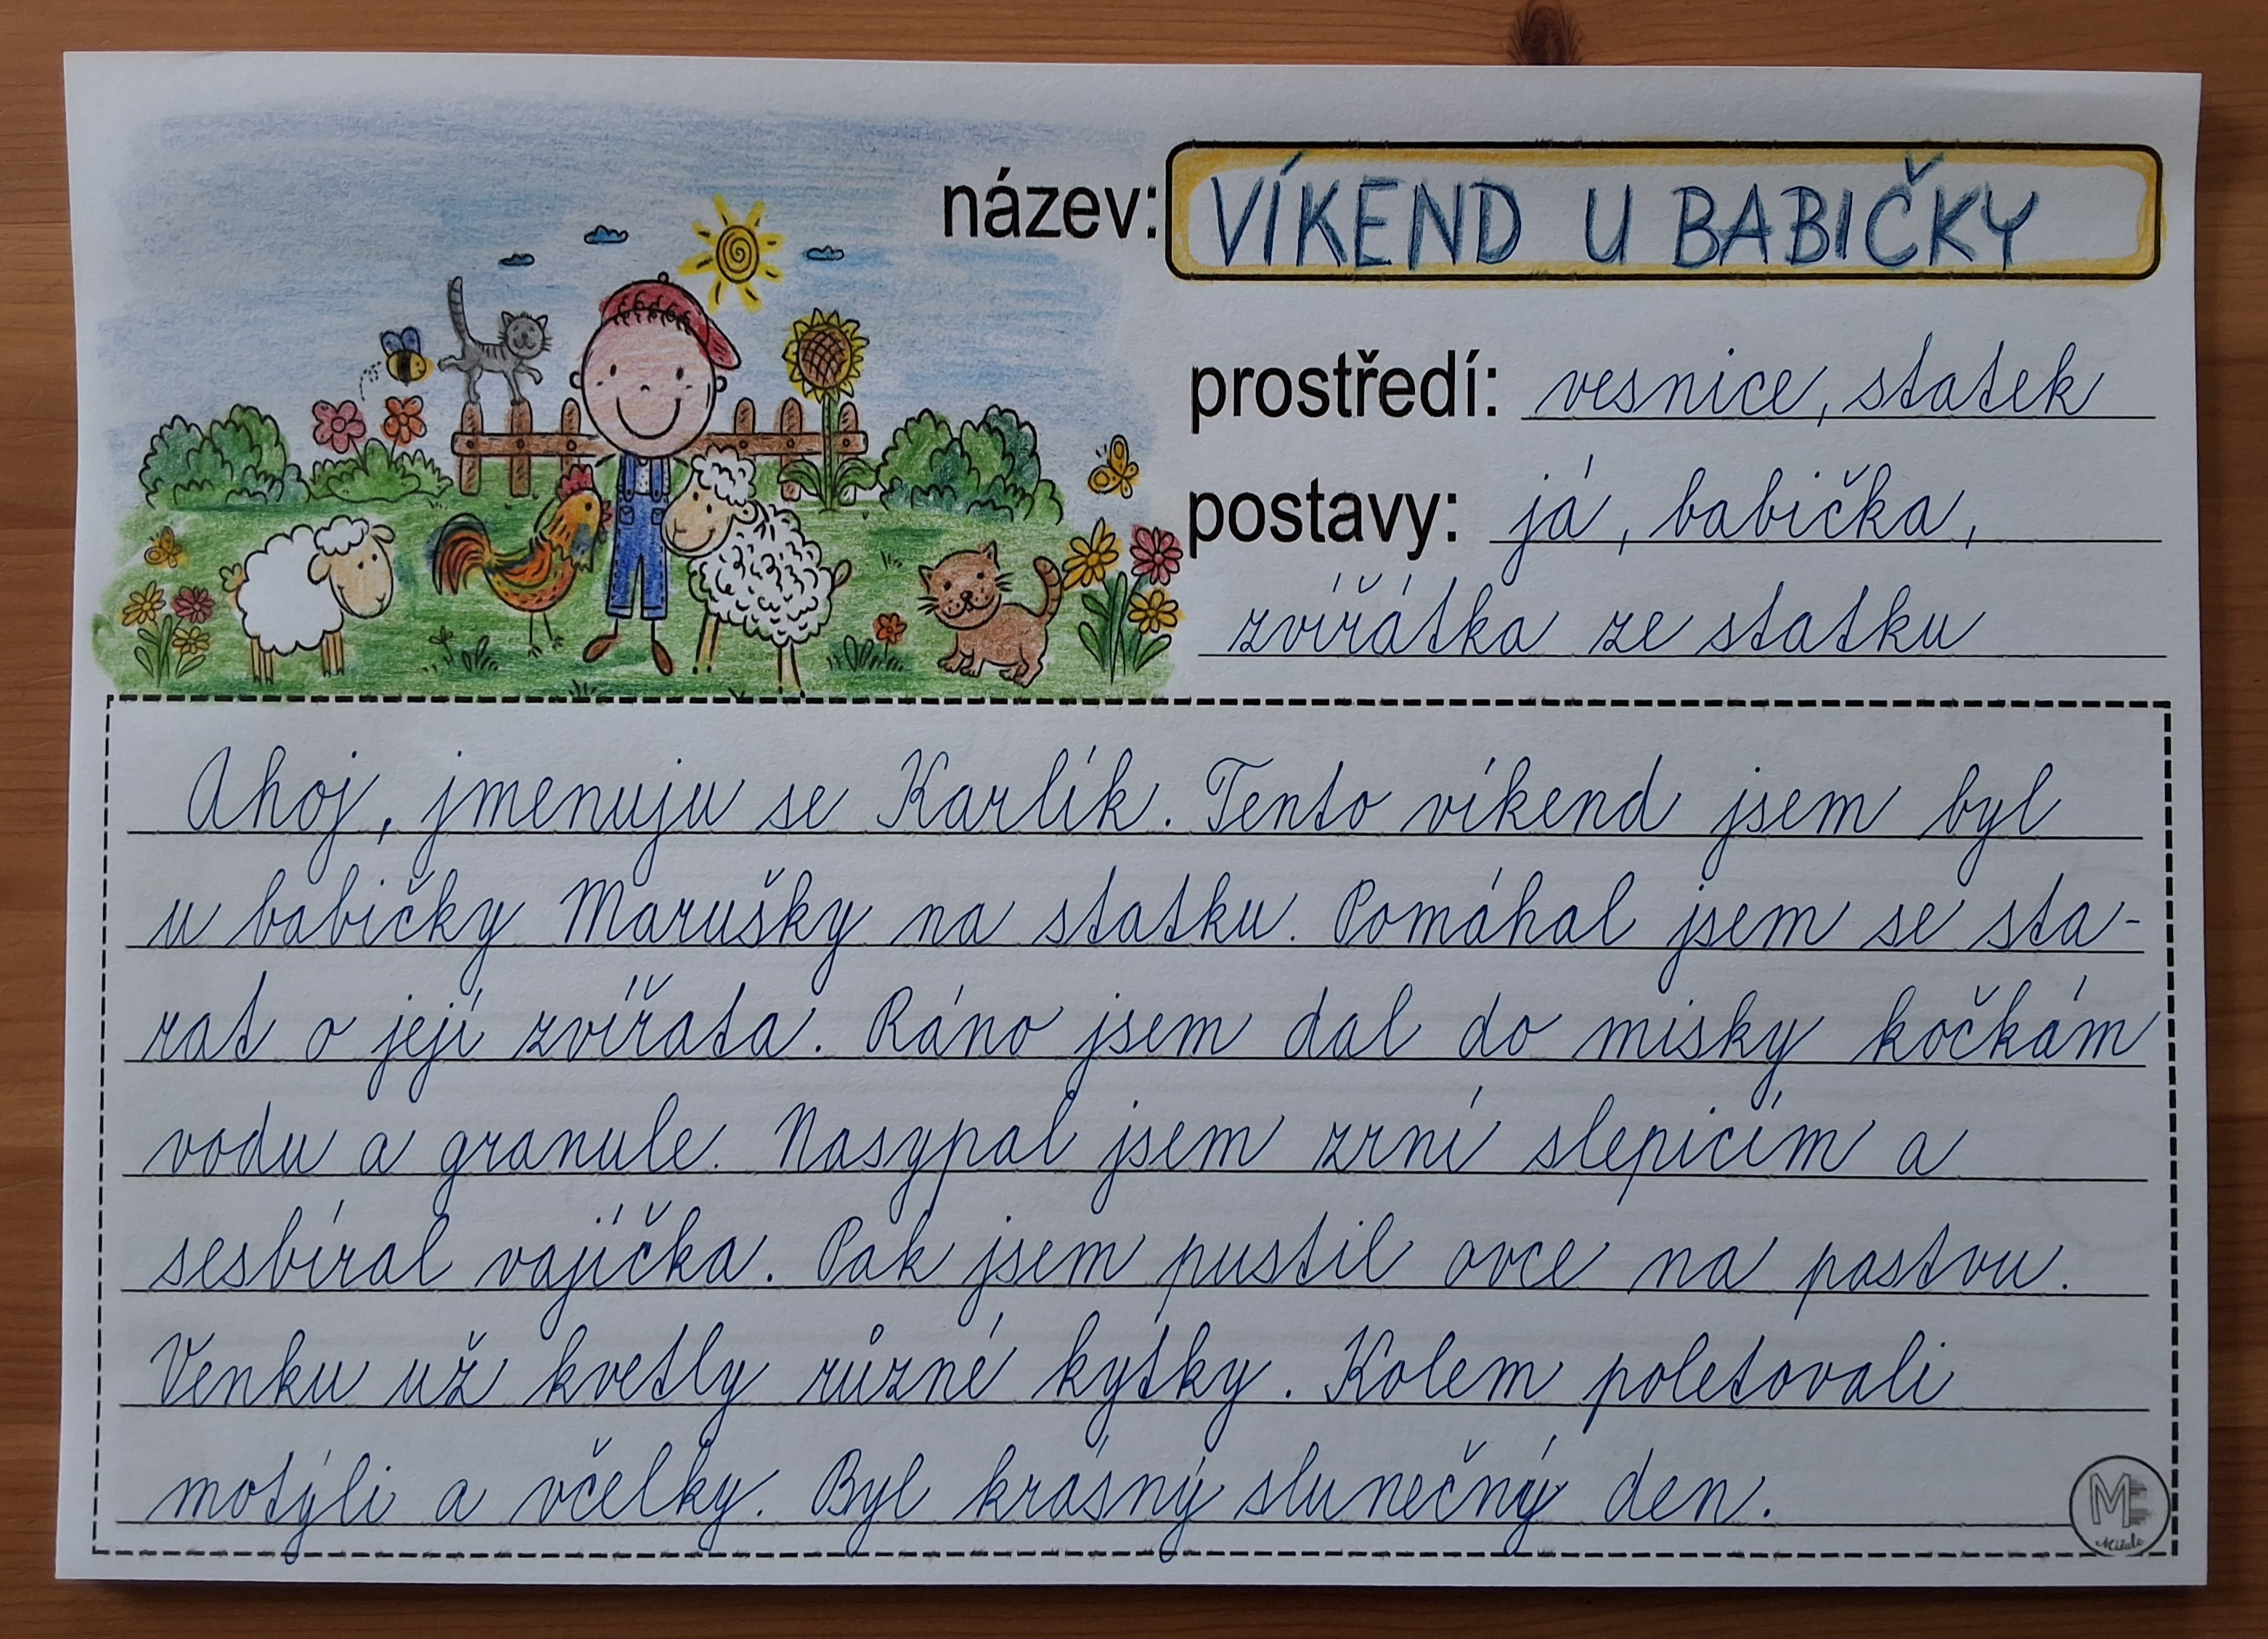 název: VÍKEND U BABIČKY
prostředí: vesnice, statek
postavy: já, babička,
zvířátka ze statku
Ahoj, jmenuju se Karlík. Tento víkend jsem byl
u babičky Marušky na statku. Pomáhal jsem se sta-
rat o její zvířata. Ráno jsem dal do misky kočkám
vodu a granule. Nasypal jsem zrní slepicím a
sesbíral vajíčka. Pak jsem pustil ovce na pastvu.
Venku už kvetly různé kytky. Kolem poletovali
motýli a včelky. Byl krásný slunečný den.